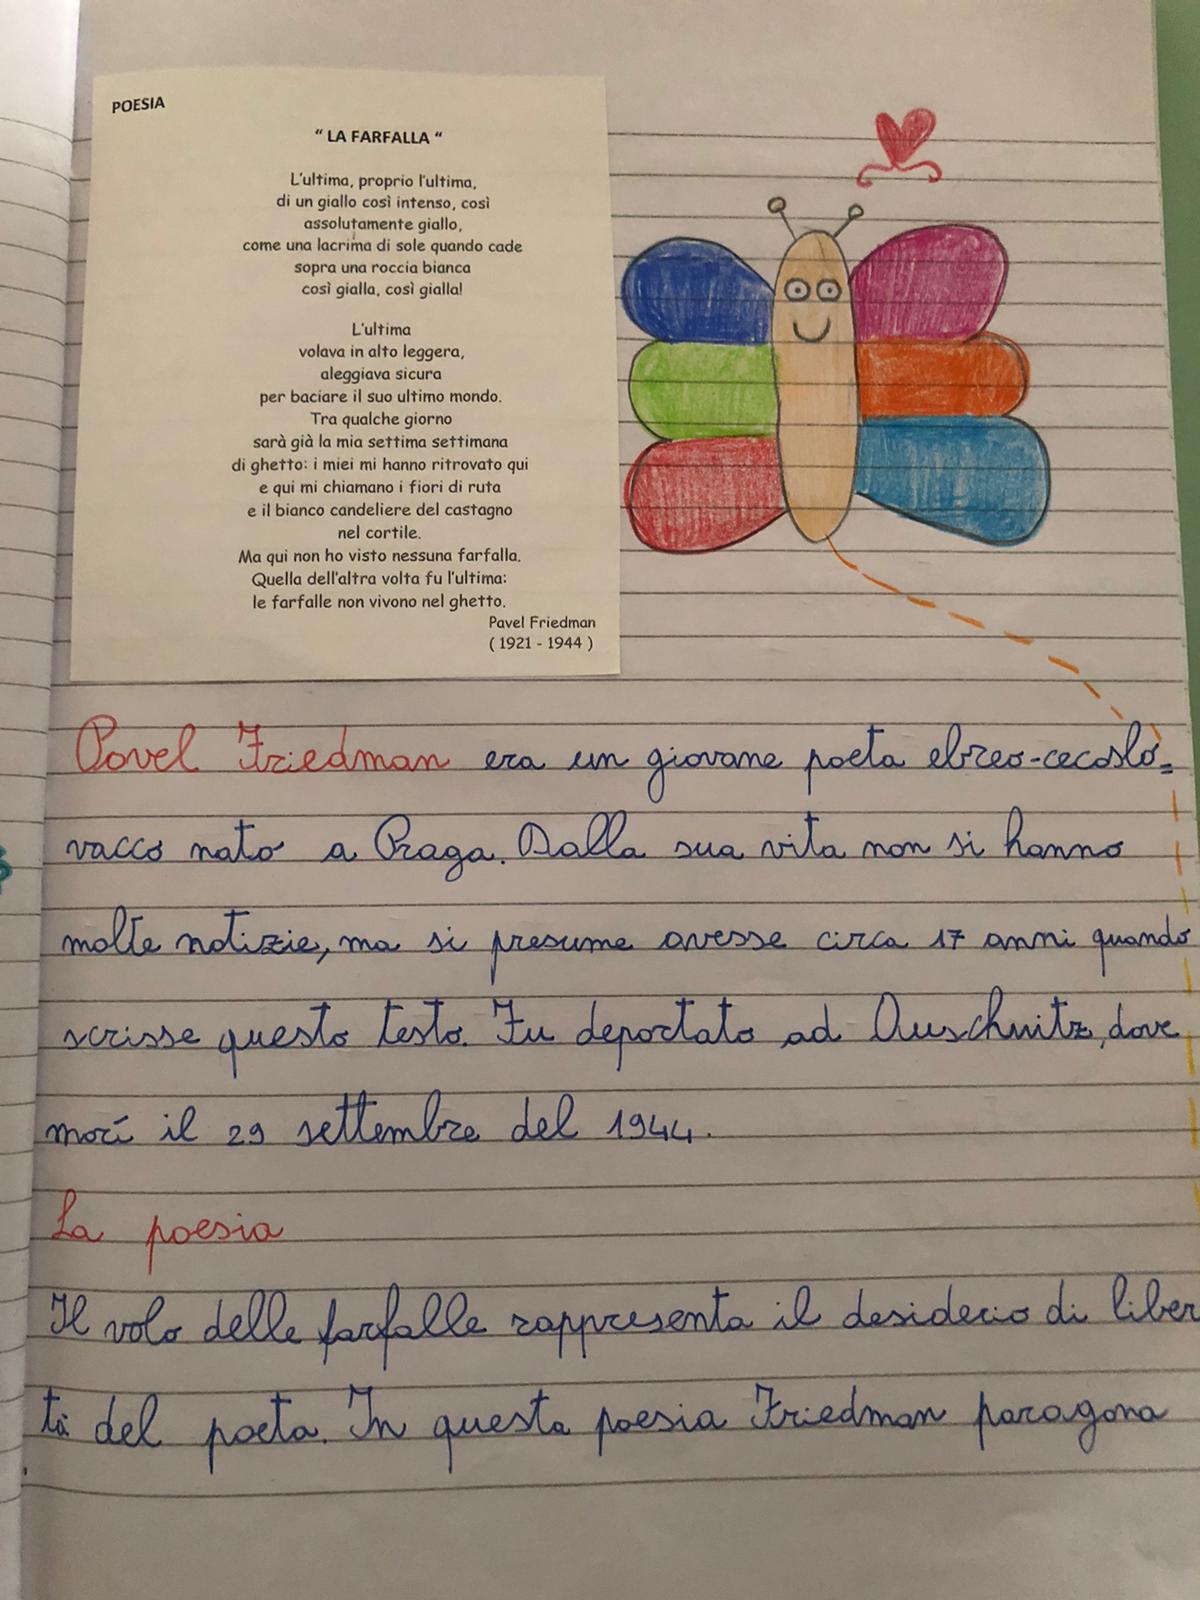 POESIA
“ LA FARFALLA “
L'ultima, proprio l'ultima,
di un giallo così intenso, così
assolutamente giallo,
come una lacrima di sole quando cade
sopra una roccia bianca
così gialla, così gialla!
L'ultima
volava in alto leggera,
aleggiava sicura
per baciare il suo ultimo mondo.
Tra qualche giorno
sarà già la mia settima settimana
di ghetto: i miei mi hanno ritrovato qui
e qui mi chiamano i fiori di ruta
e il bianco candeliere del castagno
nel cortile.
Ma qui non ho visto nessuna farfalla.
Quella dell'altra volta fu l'ultima:
le farfalle non vivono nel ghetto.
Pavel Friedman
( 1921 - 1944 )
Pavel Friedman era un giovane poeta ebreo-cecoslo=
vacco nato a Praga. Dalla sua vita non si hanno
molte notizie, ma si presume avesse circa 17 anni quando
scrisse questo testo. Fu deportato ad Auschwitz, dove
morí il 29 settembre del 1944.
La poesia
Il volo delle farfalle rappresenta il desiderio di liber
tà del poeta. In questa poesia Friedman paragona